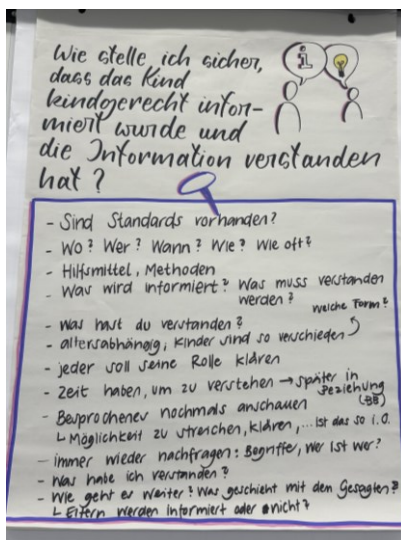 Wie stelle ich sicher,
dass das Kind
kindgerecht infor-
miert wurde und
die Information verstanden
hat?
i
- Sind Standards vorhanden?
- Wo? Wer? Wann? Wie? Wie oft?
- Hilfsmittel, Methoden
- Was wird informiert? Was muss verstanden
werden?
welche Form?
- Was hast du verstanden?
- altersabhängig, Kinder sind so verschieden
- jeder soll seine Rolle klären
- Zeit haben, um zu verstehen → später in
Beziehung
(BB)
- Besprochenes nochmals anschauen
↳ Möglichkeit zu streichen, klären, ... ist das so i.O.
- immer wieder nachfragen: Begriffe, wer ist wer?
- Was habe ich verstanden?
- Wie geht es weiter? Was geschieht mit dem Gesagten?
↳ Eltern werden informiert oder nicht?